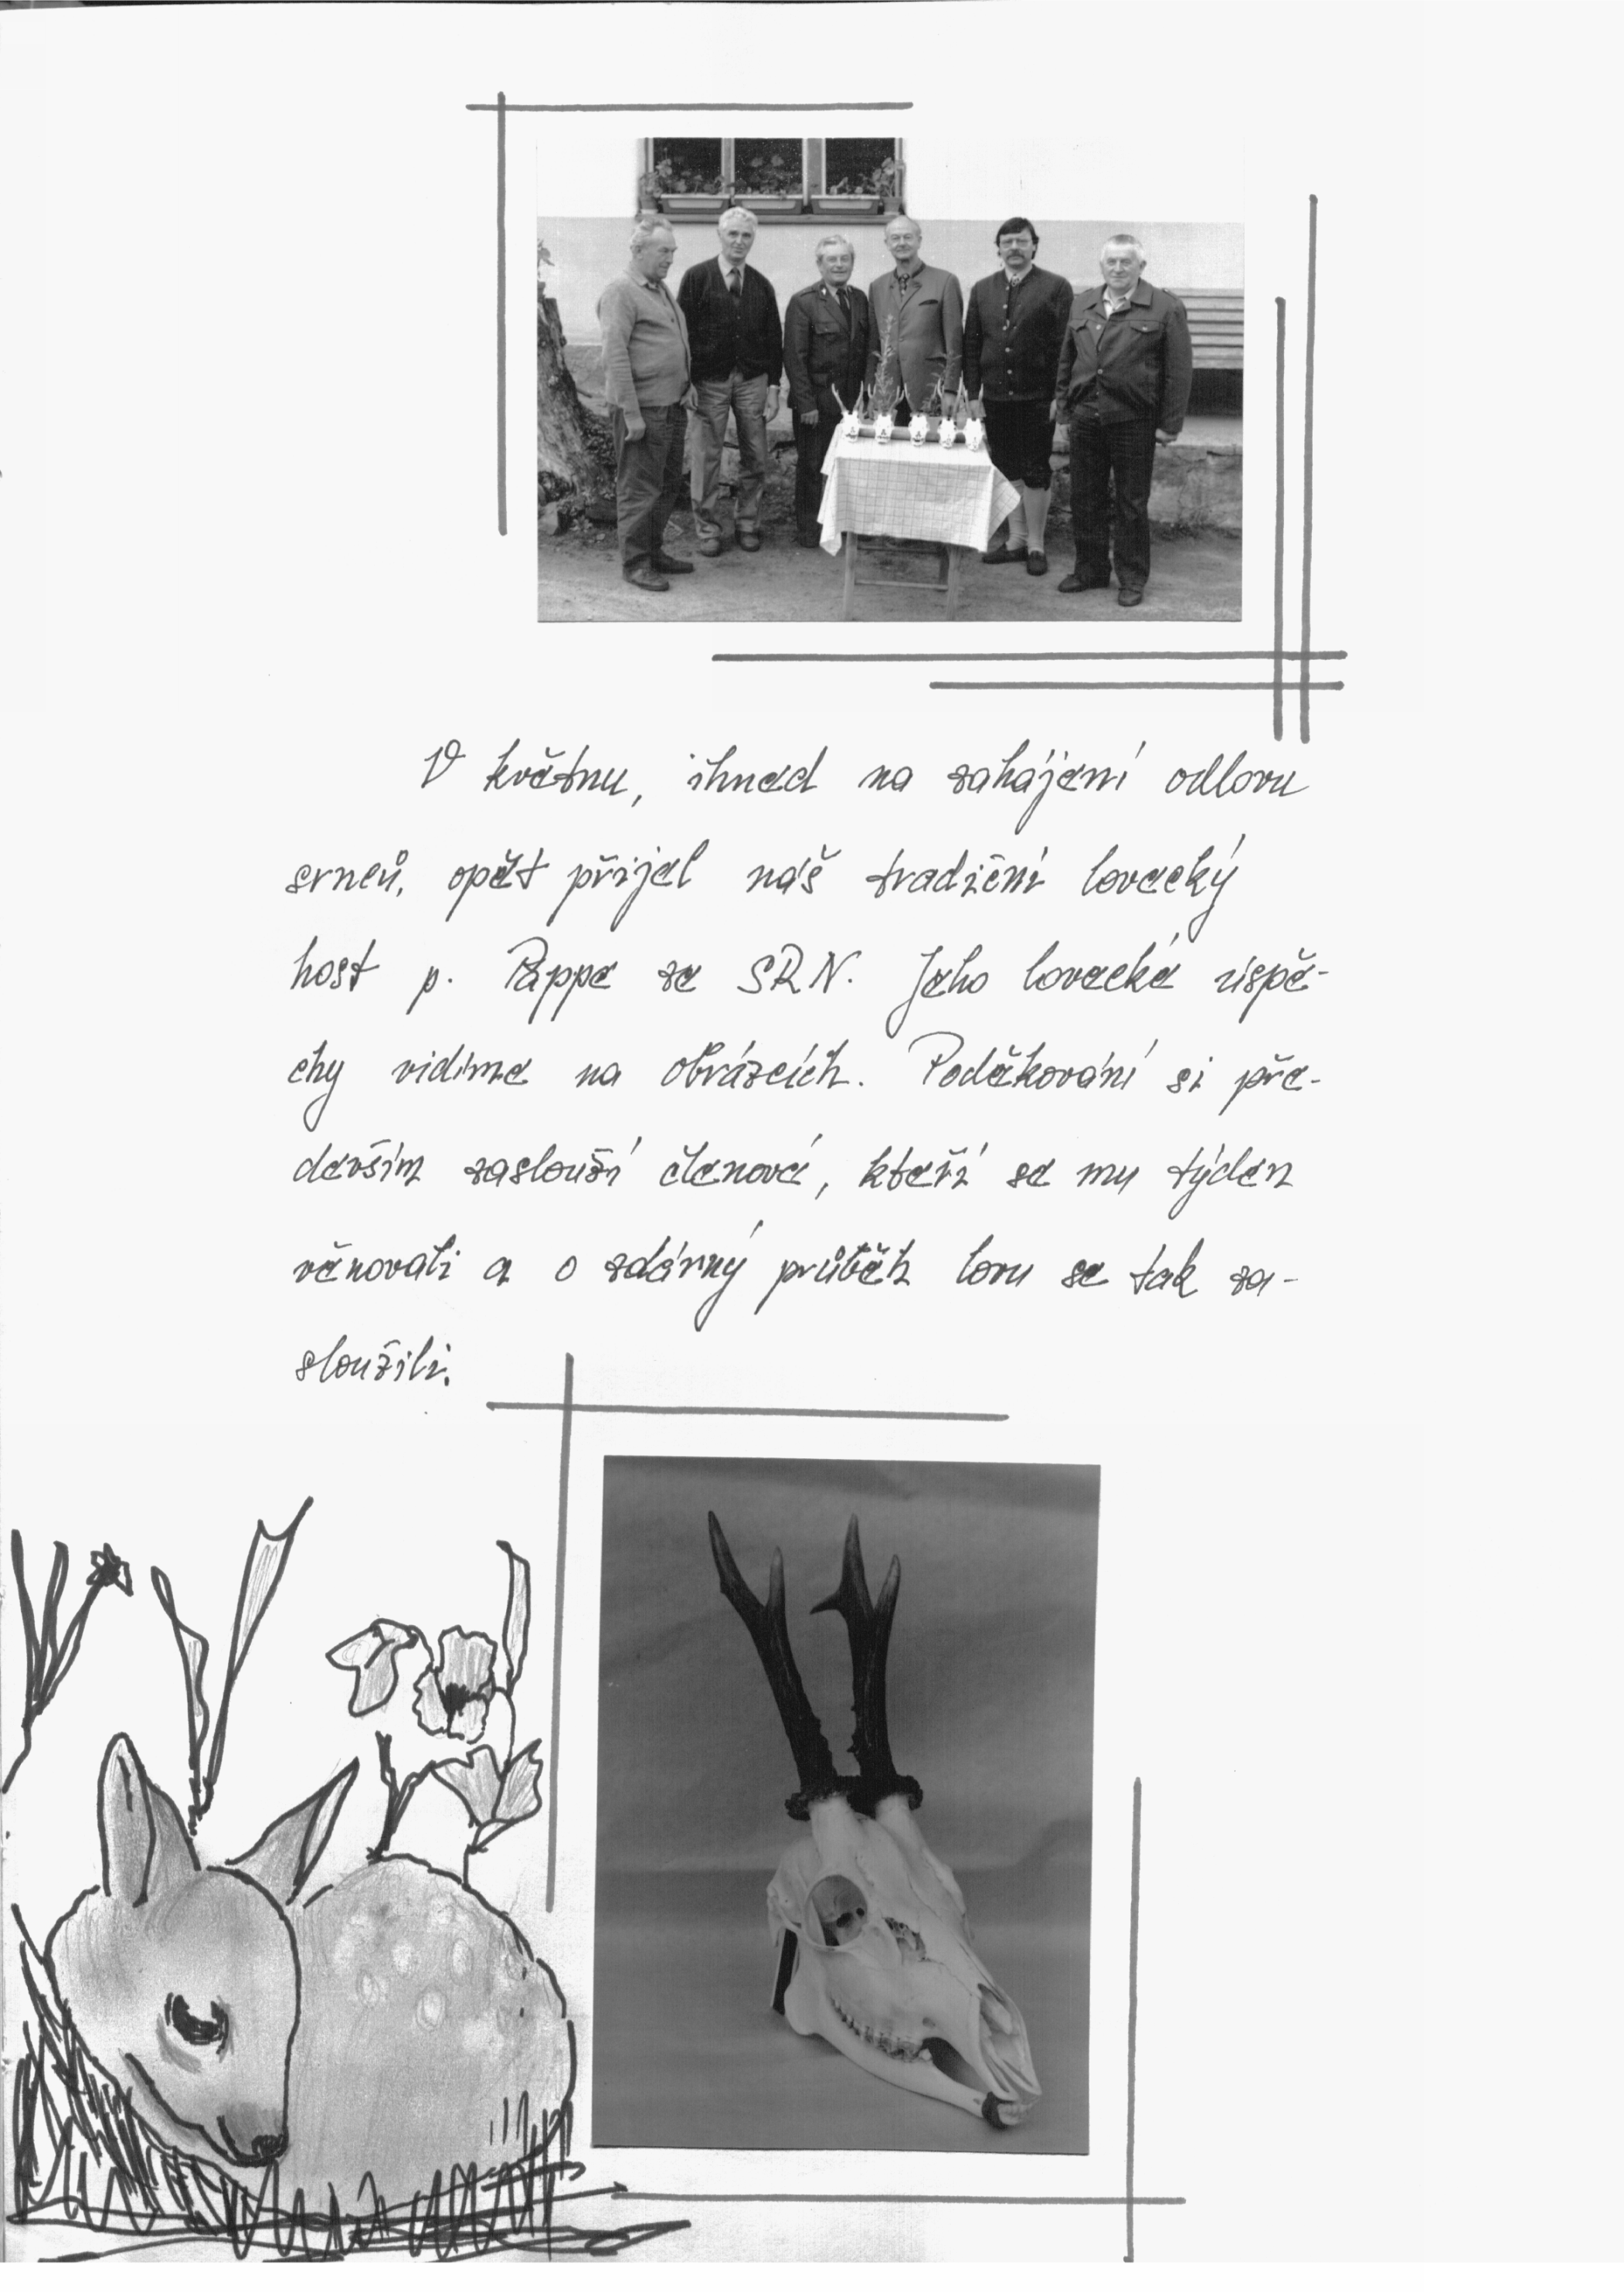 V květnu, ihned na zahájení odlovu
srnců, opět přijel náš tradiční lovecký
host p. Pappe ze SRN. Jeho lovecké úspě-
chy vidíme na obrázcích. Poděkování si pře-
devším zaslouží členové, kteří se mu týden
věnovali a o zdárný průběh lovu se tak za-
sloužili.